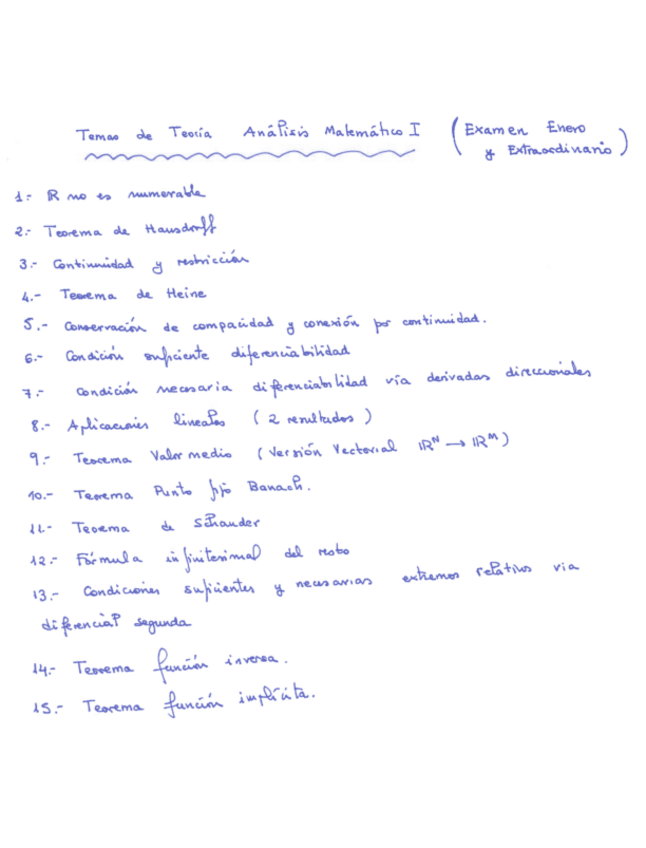 Temas de Teoría Análisis Matemático I (Examen Enero
y Extraordinario)
1:- ℝ no es numerable
2:- Teorema de Hausdorff
3:- Continuidad y restricción
4.- Teorema de Heine
5.- Conservación de compacidad y conexión por continuidad.
6:- Condición suficiente diferenciabilidad
7:- Condición necesaria diferenciabilidad vía derivadas direccionales
8:- Aplicaciones lineales (2 resultados)
9:- Teorema Valor medio (Versión Vectorial ℝᴺ → ℝᴹ)
10.- Teorema Punto fijo Banach.
11.- Teorema de Schauder
12:- Fórmula infinitesimal del resto
13:- Condiciones suficientes y necesarias extremos relativos via
diferencial segunda
14.- Teorema función inversa.
15.- Teorema función implícita.